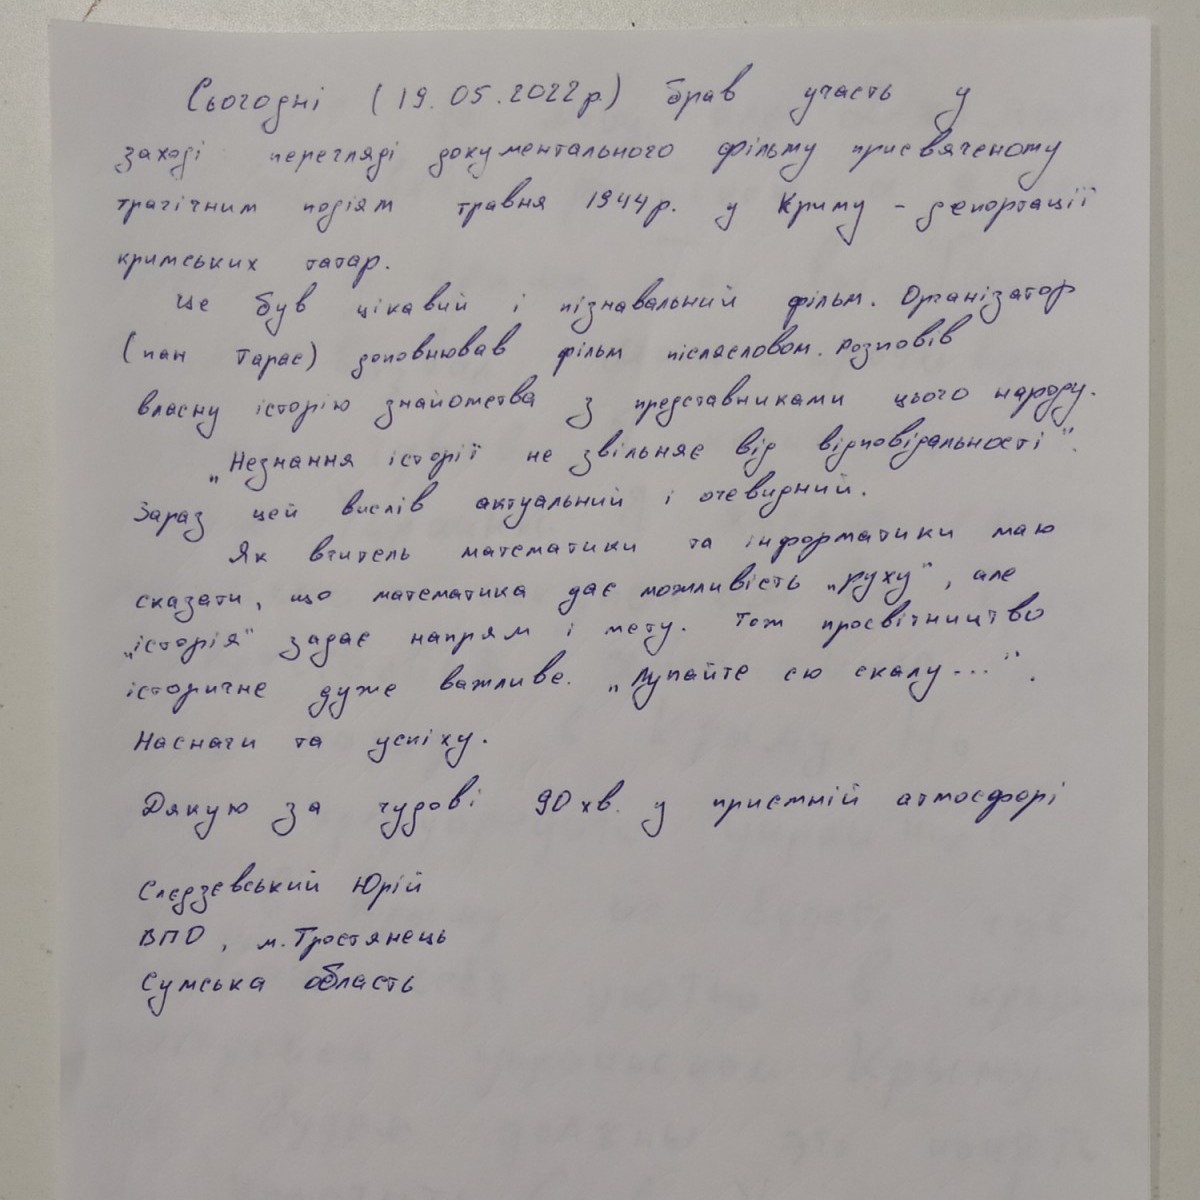 Сьогодні (19.05.2022р.) брав участь у
заході перегляді документального фільму присвяченому
трагічним подіям травня 1944р. у Криму - депортації
кримських татар.
Це був цікавий і пізнавальний фільм. Організатор
(пан Тарас) доповнював фільм післясловом. Розповів
власну історію знайомства з представниками цього народу.
„Незнання історії не звільняє від відповідальності".
Зараз цей вислів актуальний і очевидний.
Як вчитель математики та інформатики маю
сказати, що математика дає можливість „руху", але
„історія" задає напрям і мету. Тож просвічництво
історичне дуже важливе. „Лупайте сю скалу...".
Наснаги та успіху.
Дякую за чудові 90хв. у приємній атмосфері
Слєдзевський Юрій
ВПО, м. Тростянець
Сумська область